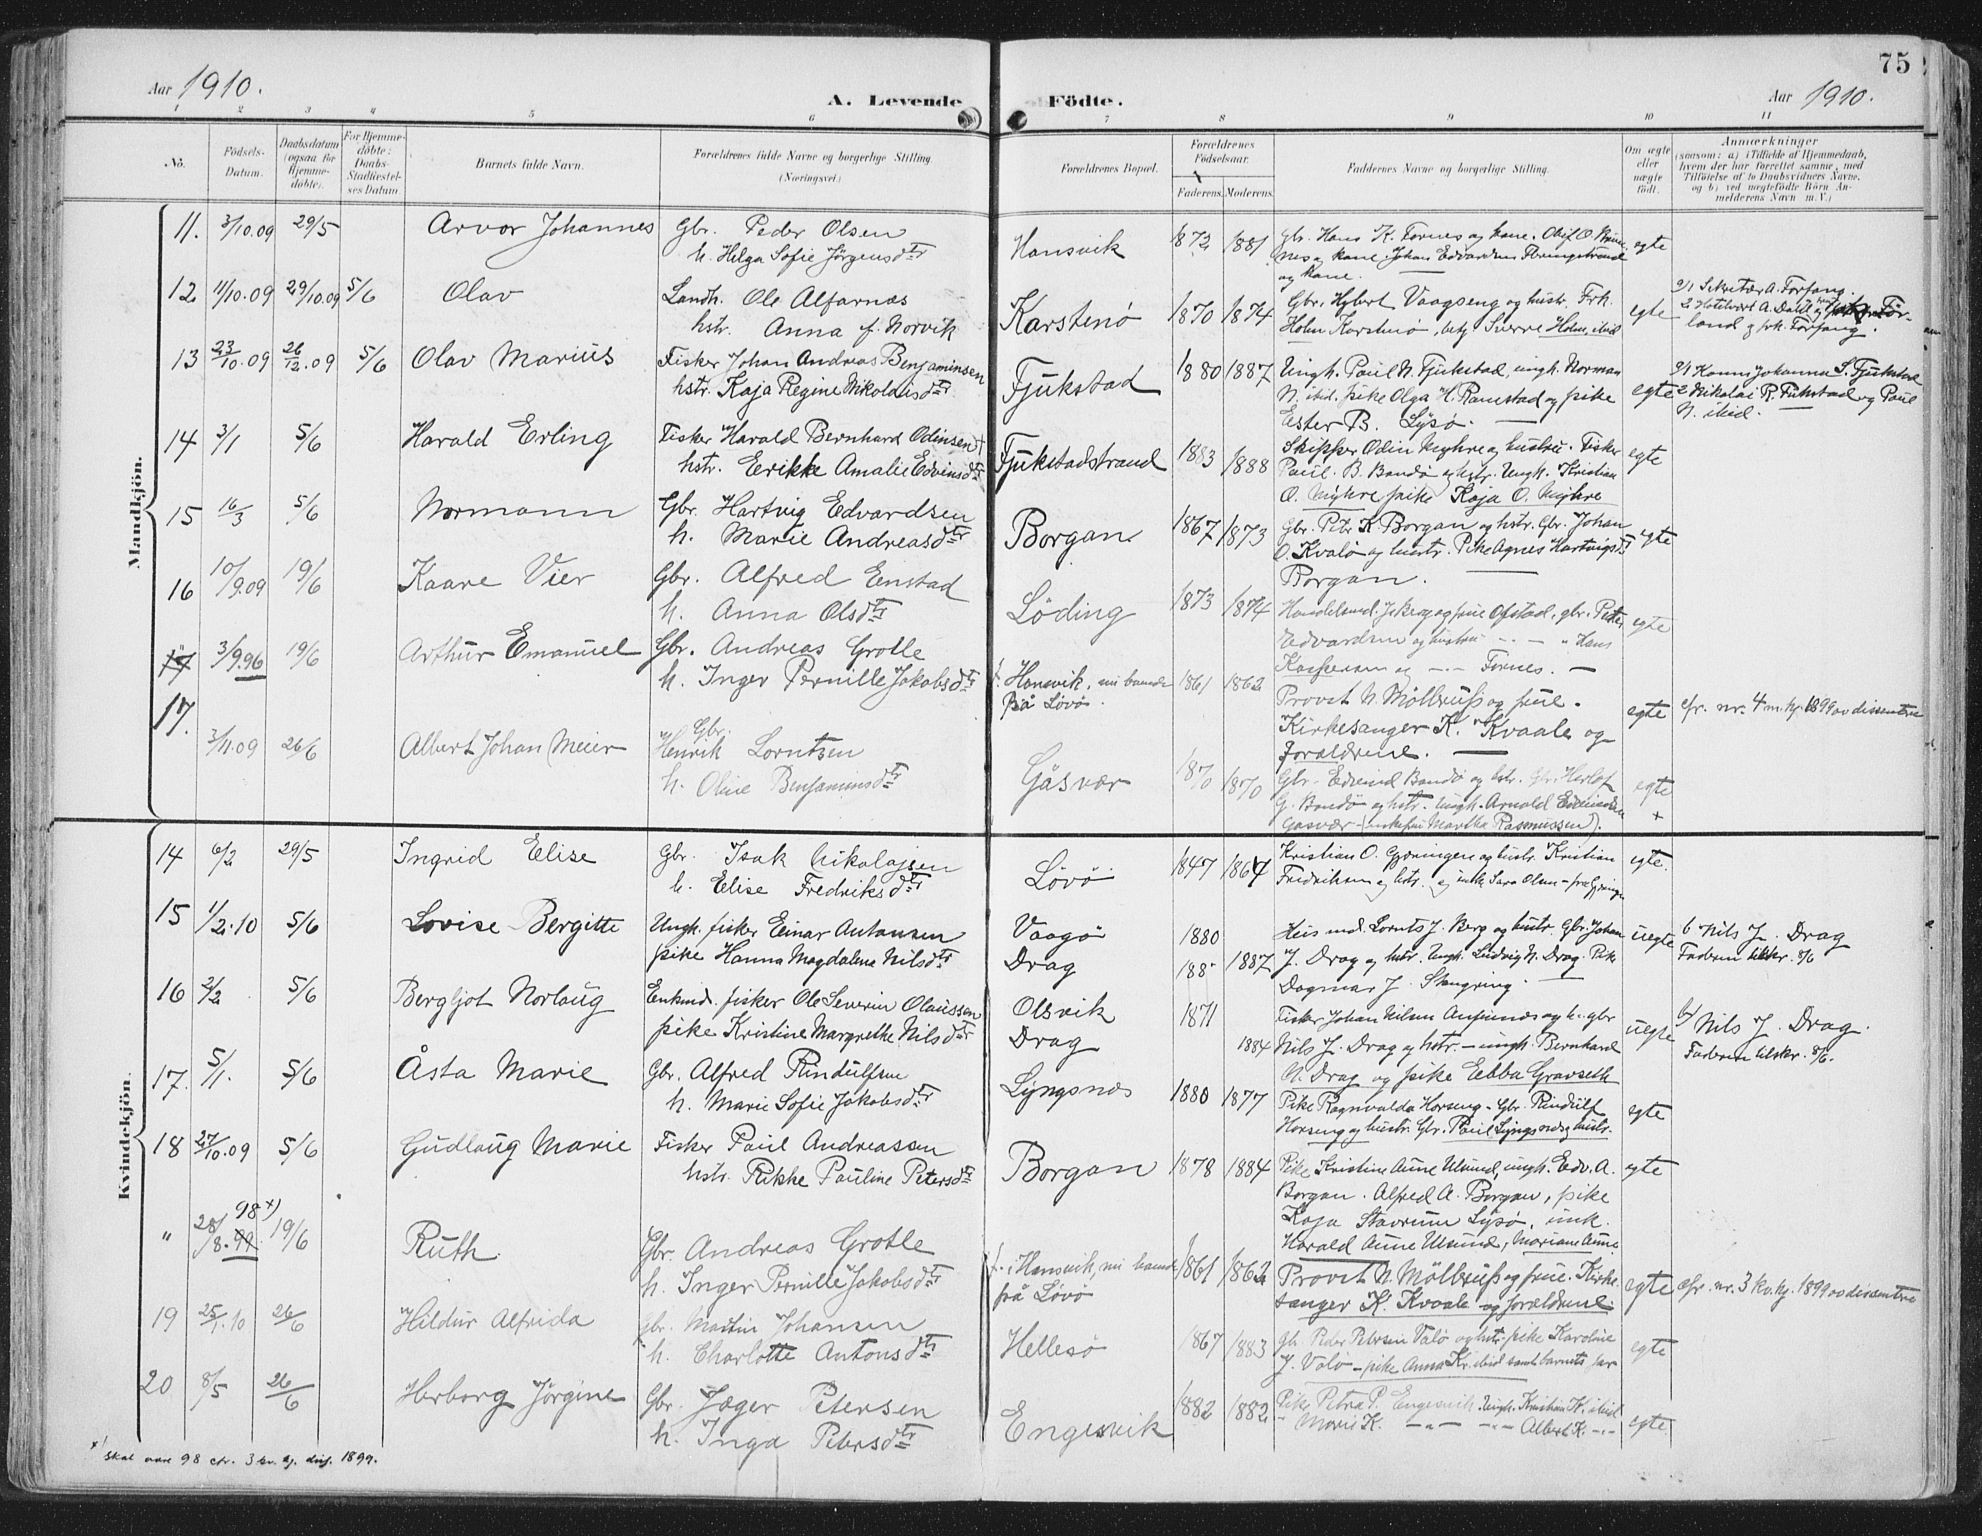 75
Aar 1910.
A. Levende Födte.
Aar 1910.
1 2 3 4 5 6 7 8 9 10 11
No.
Födsels-Datum.
Daabsdatum (ogsaa for Hjemmedöbte).
For Hjemmedöbte: Daabs-Stadfæstelses Datum.
Barnets fulde Navn.
Forældrenes fulde Navne og borgerlige Stilling. (Næringsvei.)
Forældrenes Bopæl.
Forældrenes Födselsaar.
Faderens. Moderens.
Faddernes Navne og borgerlige Stilling.
Om ægte eller uægte födt.
Anmærkninger
(saasom: a) i Tilfælde af Hjemmedaab, hvem der har forrettet samme, med Tilföielse af to Daabsvidners Navne, og b) ved uægtefödte Börn Anmelderens Navn m. V.)
Mandkjön.
11. 3/10.09 29/5 Arvor Johannes Gbr. Peder Olsen
h. Helga Sofie Jörgensdtr Hansvik 1872 1881 Gbr. Hans K. Fornes og kone. Olaf O.
og kone. Johan Edvardsen
og kone. egte
12 11/10.09 29/10.09 5/6 Olav Landh. Ole Alfarnæs
hstr. Anna f. Norvik Karstenö 1870 1874 Gbr. Hybert Vaagseng og hustr. Frk.
Holm Karstenö, egte
a/1 Sekretær A. Forfang.
2 Hotelvært A. Dahl og
land og frk. Forfang.
13 23/10.09 26/12.09 5/6 Olav Marius Fisker Johan Andreas Benjaminsen
hstr. Kaja Regine Nikolaisdtr Fjukstad 1880 1887 Ungk. Paul N. Fjukstad, ungk. Norman
N. ibid. pike Olga H. Ramstad og pike
Ester B. Lysö. egte
a/1 Hanna Johanna S. Fjukstad
2 Nikolai R. Fjukstad og Paul
N. ibid.
14 3/1 5/6 Harald Erling Fisker Harald Bernhard Odinsen
hstr. Erikke Amalie Edvinsdtr Fjukstadstrand 1883 1888 Skipper Odin Myhre og hustru. Fisker
Paul B. Bandö og hstr. Ungk. Kristian
O. Myhre pike Kaja O. Myhre egte
15 16/3 5/6 Normann Gbr. Hartvig Edvardsen
h. Marie Andreasdtr Borgan 1867 1873 Gbr. Petr. K. Borgan og hstr. Gbr. Johan
O. Kvalö og hustr. Pike Agnes Hartvigsd.
Borgan. egte
16 10/9.09 19/6 Kaare Vier Gbr. Alfred Einstad
h. Anna Olsdtr Löding 1873 1874 og frue Ofstad, gbr. Peter
Edvardsen og hustru Hans
Kaspersen og Fornes. egte
3/9.96 19/6 Arthur Emanuel Gbr. Andreas Grotle
h. Inger Pernille Jakobsdtr f. Hansvik, nu boende
på Lövö. 1861 1862 Provst N. Möllruss og frue.
Kirkesanger K. Kvaale og
forældrene. egte cfr. nr. 4 m. kj. 1899 ov dissentere
17. 3/11.09 26/6 Albert Johan Meier Gbr.
Henrik Lorntzen
h. Oline Benjaminsdtr Gåsvær 1870 1870 Gbr. Edvind Bandö og hstr. Gbr. Herlof
G. Bandö og hstr. Ungk. Arnold
Gåsvær (enkefru Martha Rasmussen). egte
+
Kvindekjön.
14 6/2 29/5 Ingrid Elise Gbr. Isak Nikolajsen
h. Elise Fredriksdtr Lövö 1847 1864 Kristian O. Gjæringen og hustr. Kristian
Fredriksen og hstr. og enke Sara Olsen egte
15 1/2.10 5/6 Lovise Bergitte Ungk. fisker Einar Antonsen
pike Hanna Magdalena Nilsdtr Vaagö
Drag 1880
188- 1887 Lornts J. Berg og hustr. Gbr. Johan
J. Drag og hstr. Ungk. Ludvig N. Drag. Pike
Dagmar J. Stangring. uegte b Nils J. Drag
Faderen tilskr. 8/6
16 2/2 5/6 Bergljot Norlaug Enkmd. fisker Ole Severin Olaussen
pike Kristine Margrethe Nilsdtr Olsvik
Drag 1871
1884 Fisker Johan Nilsen og h. gbr
Nils J. Drag og hstr. – ungk. Bernhard
N. Drag og pike Ebba Gravseth uegte b/ Nils J. Drag.
Faderen tilskr. 8/6.
17. 5/1. 5/6 Åsta Marie Gbr. Alfred Rindulfsen
h. Marie Sofie Jakobsdtr Lyngsnæs 1880 1877 Pike Ragnvalda Horseng. Gbr. Rindulf
Horseng og hustr. Gbr. Paul Lyngsnæs og hustr. egte
18 27/10.09 5/6 Gudlaug Marie Fisker Paul Andreassen
hstr. Rikke Pauline Petersdtr Borgan 1878 1884 Pike Kristine Aune Ulsund, ungk. Edv. A.
Borgan. Alfred A. Borgan, pike
Kaja Stavrum Lysö, enk.
Harald Aune Ulsund, Mariane Aune egte
" 28/8.99 98 x) 19/6 Ruth Gbr. Andreas Grotle
h. Inger Pernille Jakobsdtr f. i Hansvik, nu boende
på Lövö 1861 1862 Provst N. Möllruss og frue. Kirke-
sanger K. Kvaale og forældrene egte cfr. nr. 3 kv. kj. 1899 ov dissentere
19 25/1.10 26/6 Hildur Alfrida Gbr. Martin Johansen
h. Charlotte Antonsdtr Hellesö 1867 1883 Gb. Peder Petersen Valö og hstr. pike Karoline
J. Valö – pike Anna Kr. ibid samt barnets far egte
20 8/5 26/6 Herborg Jörgine Gbr. Jæger Petersen
h. Inga Petersdtr Engesvik 1882 1882 Pike Petra P. Engesvik. Ungk. Kristian K. ibid
" Marie K. Albert K. egte
x) skal være 98 cfr. 3 kv. kj. diss. 1899.